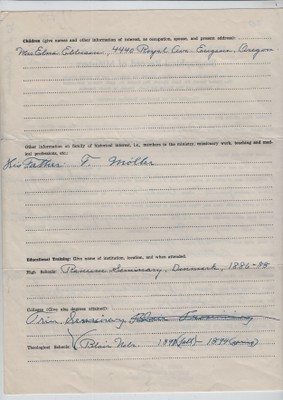 Children (give names and other information of interest, as occupation, spouse, and present address):
Mrs Edna Ebbesen, 4440 Royal Ave. Eugene, Oregon
Other information on family of historical interest, i.e., workers in the ministry, missionary work, teaching and medical professions, etc:
His Father T. Möller
Educational Training: (Give name of institution, location, and when attended.
High School: Seminary, Denmark, 1886-88
College: (Give also degrees obtained):
Trin. Seminary
Theological School: Blair Nebr. 1891 (fall) - 1894 (spring)